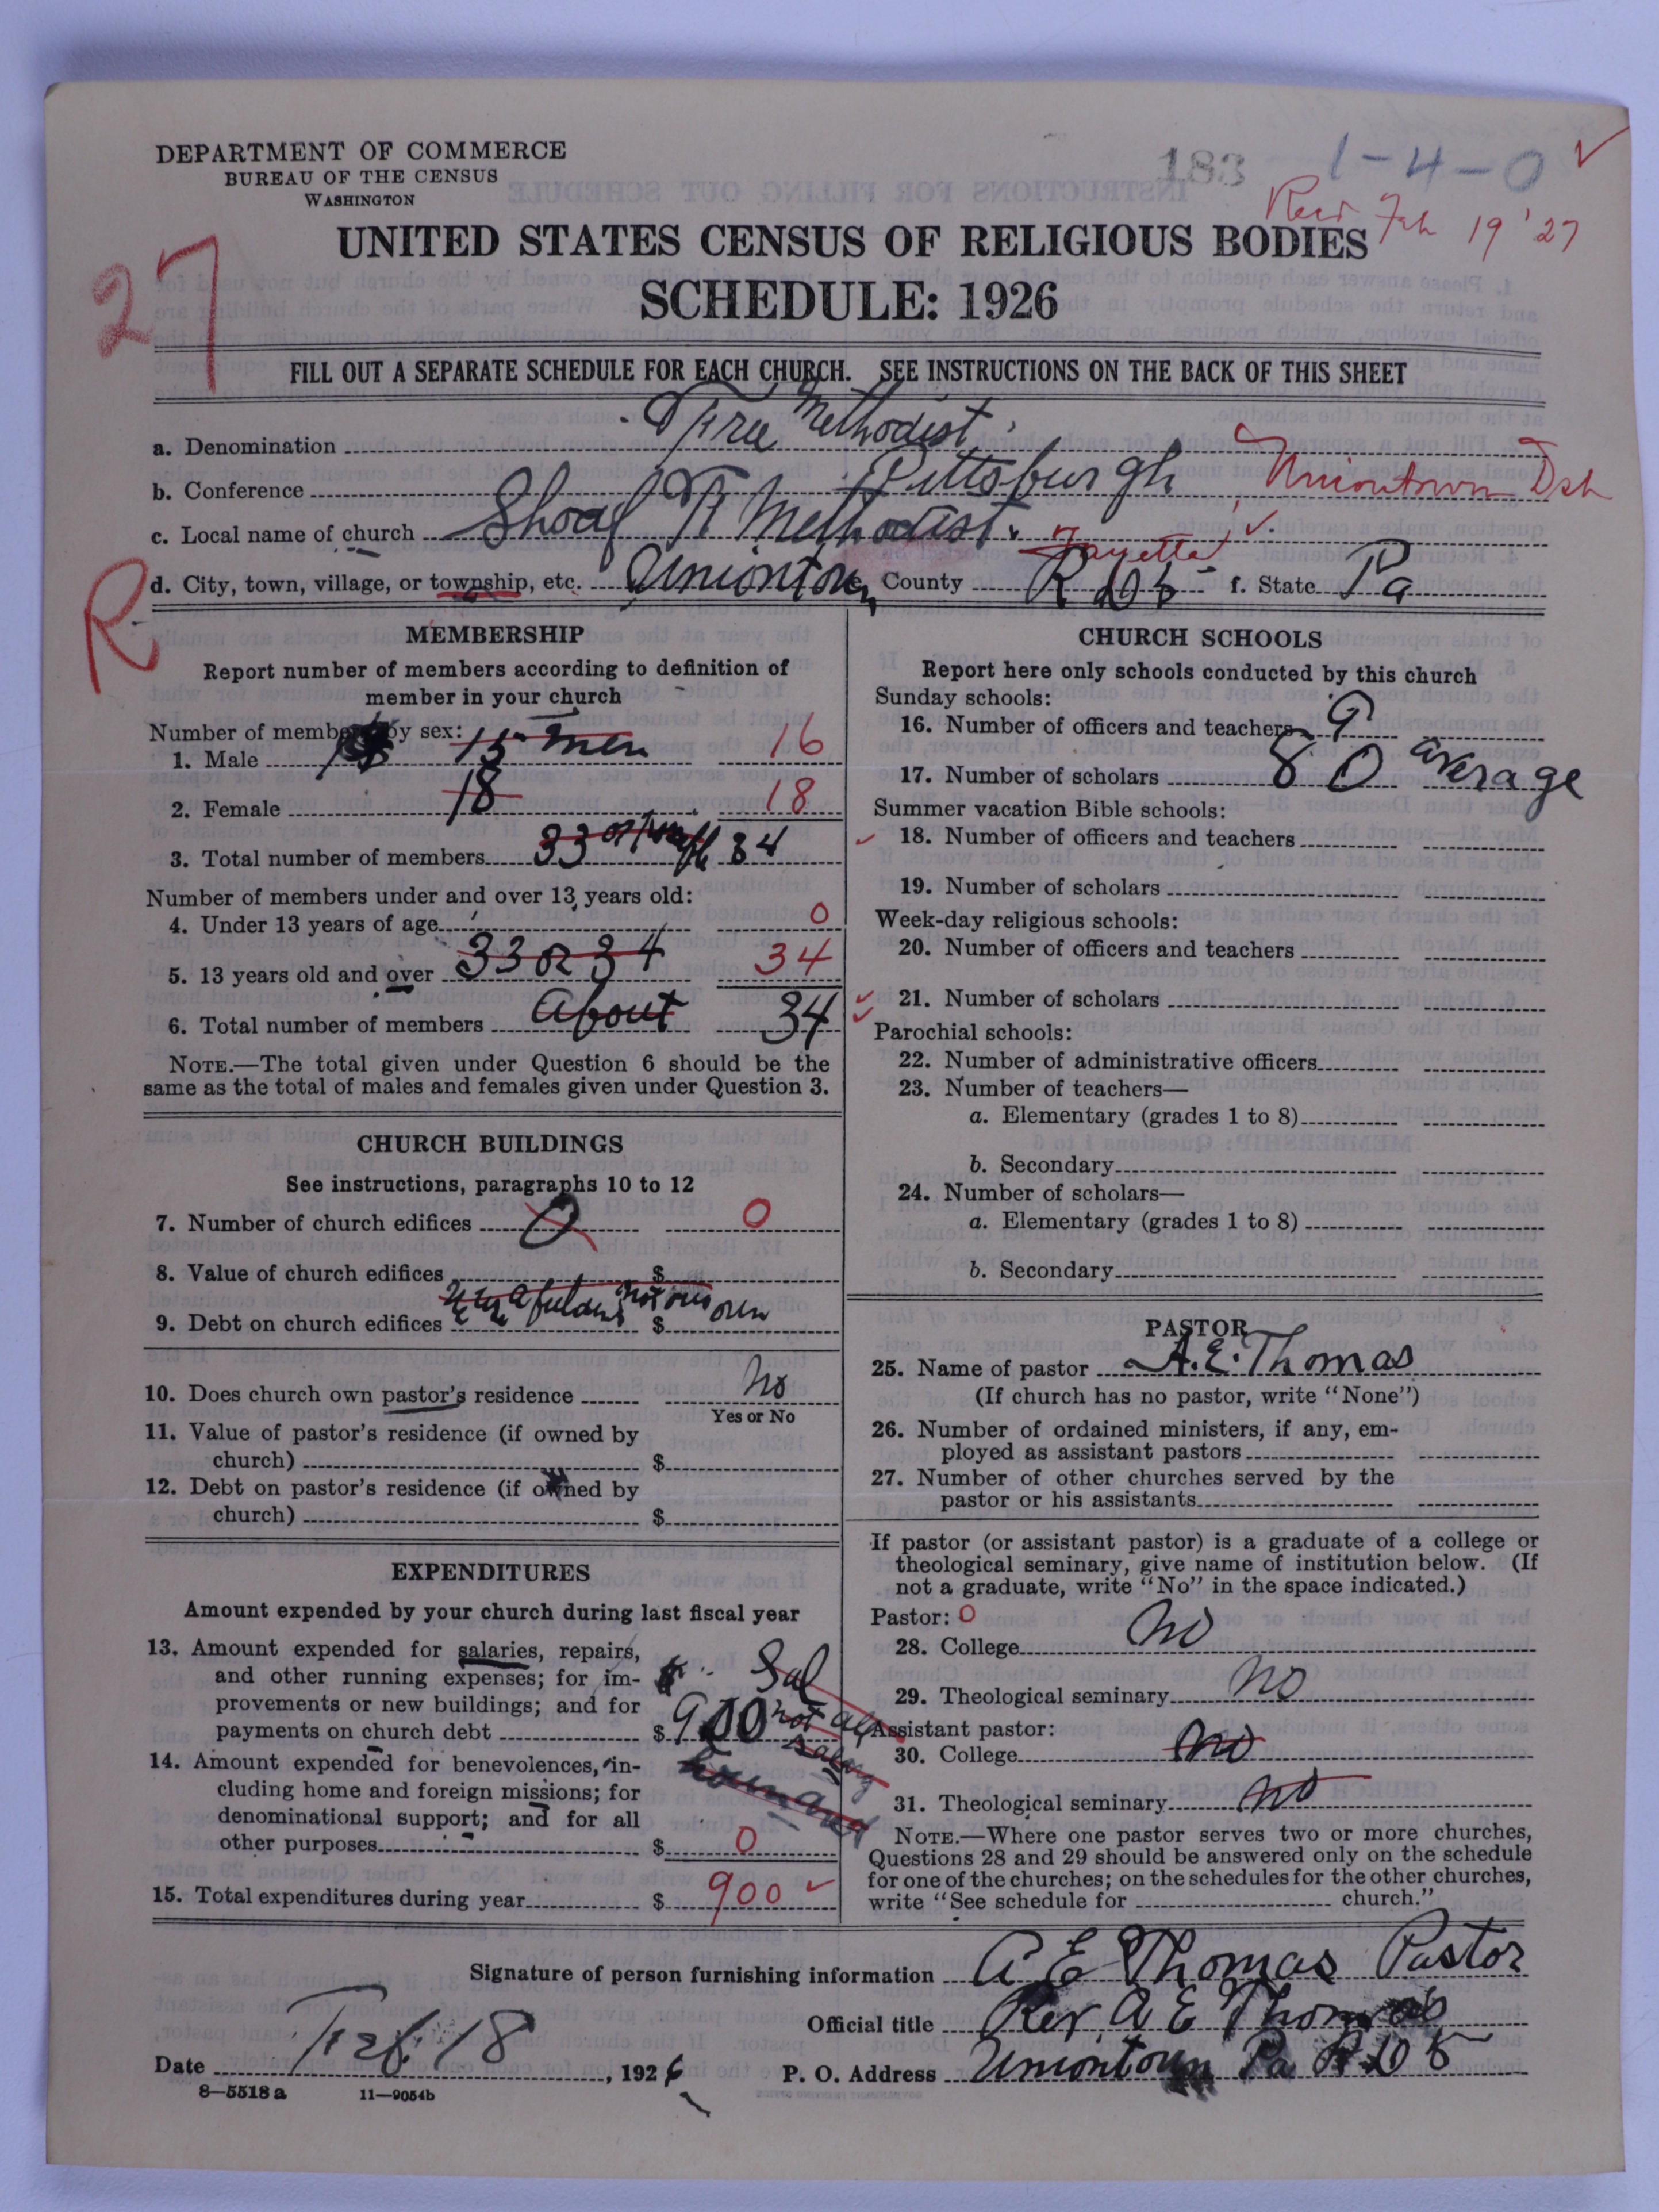 DEPARTMENT OF COMMERCE
BUREAU OF THE CENSUS
WASHINGTON
183 1-4-0 ✓
Feb 19 '27
UNITED STATES CENSUS OF RELIGIOUS BODIES
SCHEDULE: 1926
27
FILL OUT A SEPARATE SCHEDULE FOR EACH CHURCH. SEE INSTRUCTIONS ON THE BACK OF THIS SHEET
a. Denomination Free Methodist
b. Conference Pittsburgh Uniontown Dst
c. Local name of church Shoaf F Methodist
d. City, town, village, or township, etc. Uniontown County Fayette R D 5 f. State Pa
R
MEMBERSHIP
Report number of members according to definition of
member in your church
Number of members by sex:
1. Male 15 men 16
2. Female 18 18
3. Total number of members 33 or 34
Number of members under and over 13 years old:
4. Under 13 years of age 0
5. 13 years old and over 33 or 34 34
6. Total number of members About 34
NOTE.—The total given under Question 6 should be the
same as the total of males and females given under Question 3.
CHURCH BUILDINGS
See instructions, paragraphs 10 to 12
7. Number of church edifices 0 0
8. Value of church edifices $
not our own
9. Debt on church edifices $
10. Does church own pastor's residence No
Yes or No
11. Value of pastor's residence (if owned by
church) $
12. Debt on pastor's residence (if owned by
church) $
EXPENDITURES
Amount expended by your church during last fiscal year
13. Amount expended for salaries, repairs,
and other running expenses; for im-
provements or new buildings; and for
payments on church debt $900 Sal not all salary
14. Amount expended for benevolences, in-
cluding home and foreign missions; for
denominational support; and for all
other purposes $ 0
15. Total expenditures during year $ 900 ✓
CHURCH SCHOOLS
Report here only schools conducted by this church
Sunday schools:
16. Number of officers and teachers 9
17. Number of scholars 80 average
Summer vacation Bible schools:
18. Number of officers and teachers
19. Number of scholars
Week-day religious schools:
20. Number of officers and teachers
21. Number of scholars
Parochial schools:
22. Number of administrative officers
23. Number of teachers—
a. Elementary (grades 1 to 8)
b. Secondary
24. Number of scholars—
a. Elementary (grades 1 to 8)
b. Secondary
PASTOR
25. Name of pastor A. E. Thomas
(If church has no pastor, write "None")
26. Number of ordained ministers, if any, em-
ployed as assistant pastors
27. Number of other churches served by the
pastor or his assistants
If pastor (or assistant pastor) is a graduate of a college or
theological seminary, give name of institution below. (If
not a graduate, write "No" in the space indicated.)
Pastor: 0
28. College No
29. Theological seminary No
Assistant pastor:
30. College No
31. Theological seminary No
NOTE.—Where one pastor serves two or more churches,
Questions 28 and 29 should be answered only on the schedule
for one of the churches; on the schedules for the other churches,
write "See schedule for church."
Signature of person furnishing information A E Thomas Pastor
Official title Rev. A E Thomas
Date Feb. 18, 1926 P. O. Address Uniontown Pa R D 5
8—5518 a 11—9054b